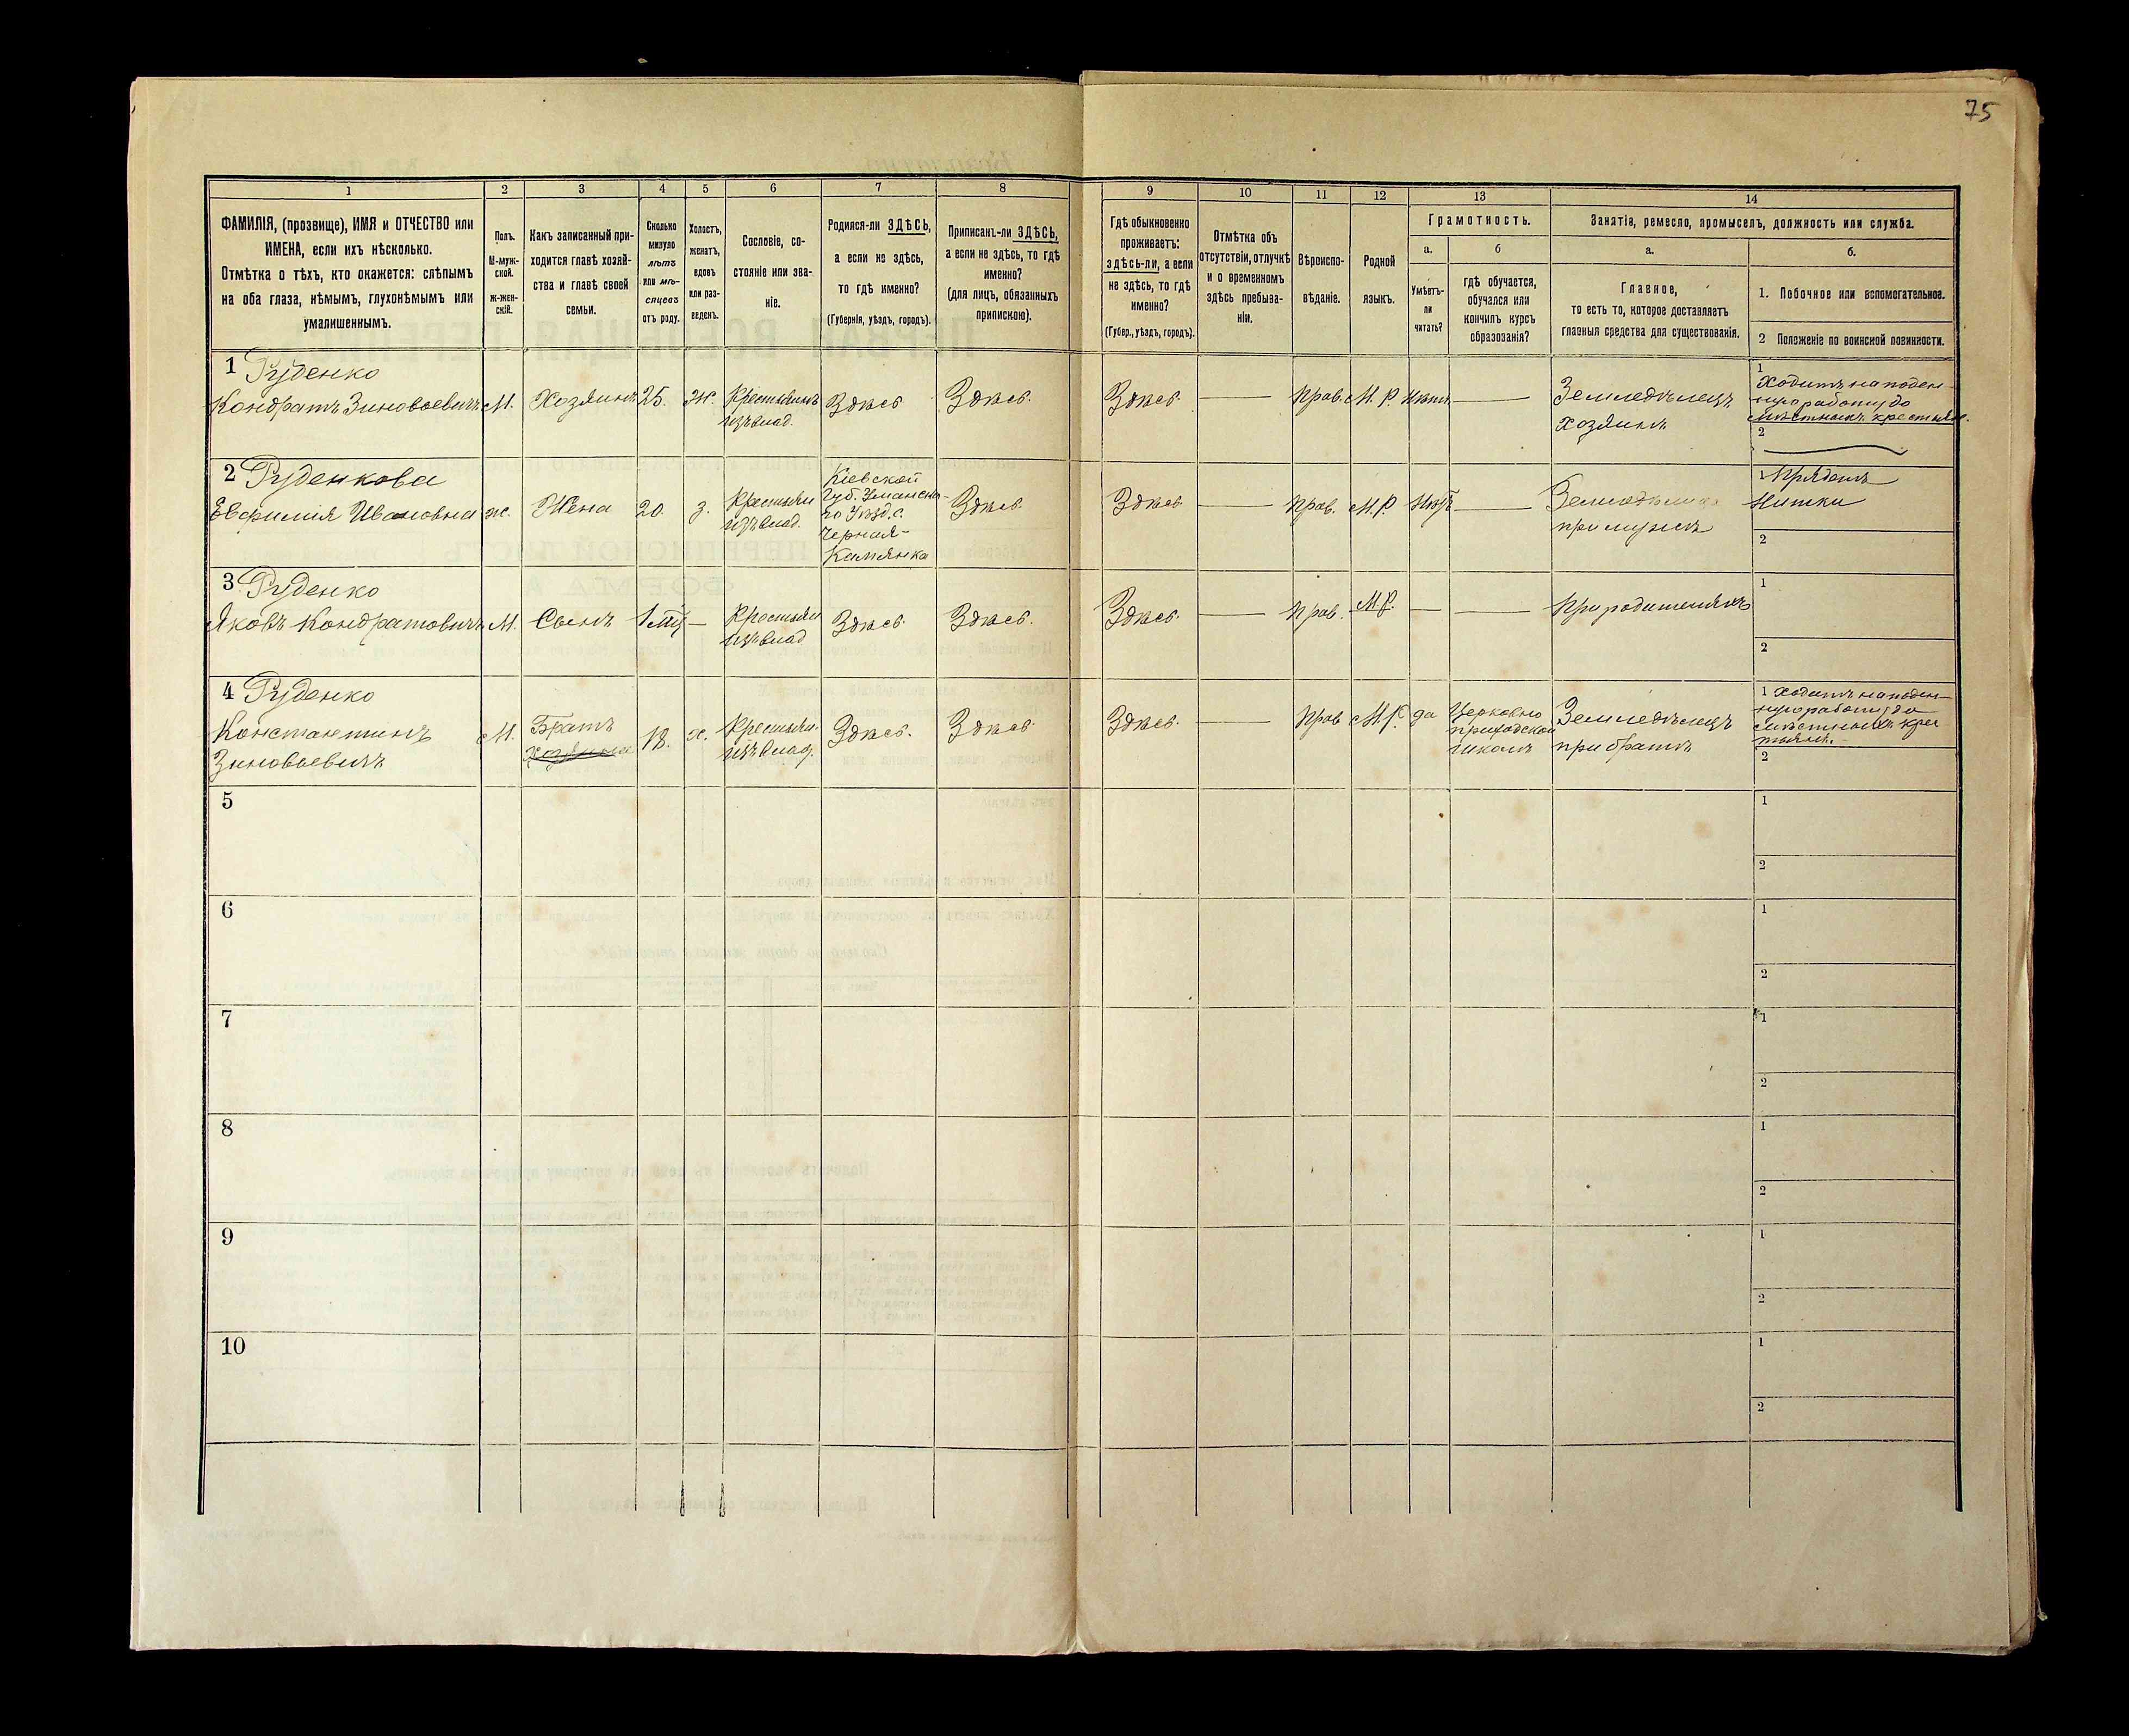 75
1
2
3
4
5
6
7
8
9
10
11
12
13
14
ФАМИЛІЯ, (прозвище), ИМЯ и ОТЧЕСТВО или
ИМЕНА, если ихъ нѣсколько.
Отмѣтка о тѣхъ, кто окажется: слѣпымъ
на оба глаза, нѣмымъ, глухонѣмымъ или
умалишеннымъ.
Полъ.
М-муж-
ской.
Ж-жен-
скій.
Какъ записанный при-
ходится главѣ хозяй-
ства и главѣ своей
семьи.
Сколько
минуло
лѣтъ
или мѣ-
сяцевъ
отъ роду.
Холостъ,
женатъ,
вдовъ
или раз-
веденъ.
Сословіе, со-
стояніе или зва-
ніе.
Родился-ли ЗДѢСЬ,
а если не здѣсь,
то гдѣ именно?
(Губернія, уѣздъ, городъ).
Приписанъ-ли ЗДѢСЬ,
а если не здѣсь, то гдѣ
именно?
(для лицъ, обязанныхъ
припискою).
Гдѣ обыкновенно
проживаетъ:
здѣсь-ли, а если
не здѣсь, то гдѣ
именно?
(Губер., уѣздъ, городъ).
Отмѣтка объ
отсутствіи, отлучкѣ
и о временномъ
здѣсь пребыва-
ніи.
Вѣроиспо-
вѣданіе.
Родной
языкъ.
Грамотность.
а.
Умѣетъ-
ли
читать?
б
гдѣ обучается,
обучался или
кончилъ курсъ
образованія?
Занятія, ремесло, промыселъ, должность или служба.
а.
Главное,
то есть то, которое доставляетъ
главныя средства для существованія.
б.
1. Побочное или вспомогательное.
2 Положеніе по воинской повинности.
1 Руденко
Кондратъ Зиновьевичъ
М.
Хозяинъ
25.
Ж.
Крестьянинъ
изъ влад.
Здѣсь
Здѣсь.
Здѣсь
—
Прав.
М. Р.
Нѣтъ
—
Земледѣлецъ
хозяинъ
1
Ходитъ на поден-
ную работу до
мѣстныхъ крестьян.
2
2 Руденкова
Евфимія Ивановна
ж.
Жена
20.
з.
Крестьян
изъ влад.
Кіевской
Губ. Уманска-
го Уѣзд. с.
Черная-
Камянка
Здѣсь
Здѣсь
—
Прав.
М.Р.
Нѣтъ
—
при мужѣ
1 Прядетъ
Нитки
2
3 Руденко
Яковъ Кондратовичъ
М.
Сынъ
1 мц
—
Крестьян
изъ влад
Здѣсь
Здѣсь.
Здѣсь.
—
Прав.
М.Р.
—
—
При родителяхъ
1
2
4 Руденко
Константинъ
Зиновьевичъ
М.
Братъ
хозяина
18.
х.
Крестьян.
изъ влад.
Здѣсь.
Здѣсь
Здѣсь.
—
Прав
М.Р.
да
Церковно
приходской
школѣ
Земледѣлецъ
при братѣ
1 Ходитъ на поден-
ную работу до
мѣстныхъ крес
тьян.
2
5
1
2
6
1
2
7
1
2
8
1
2
9
1
2
10
1
2